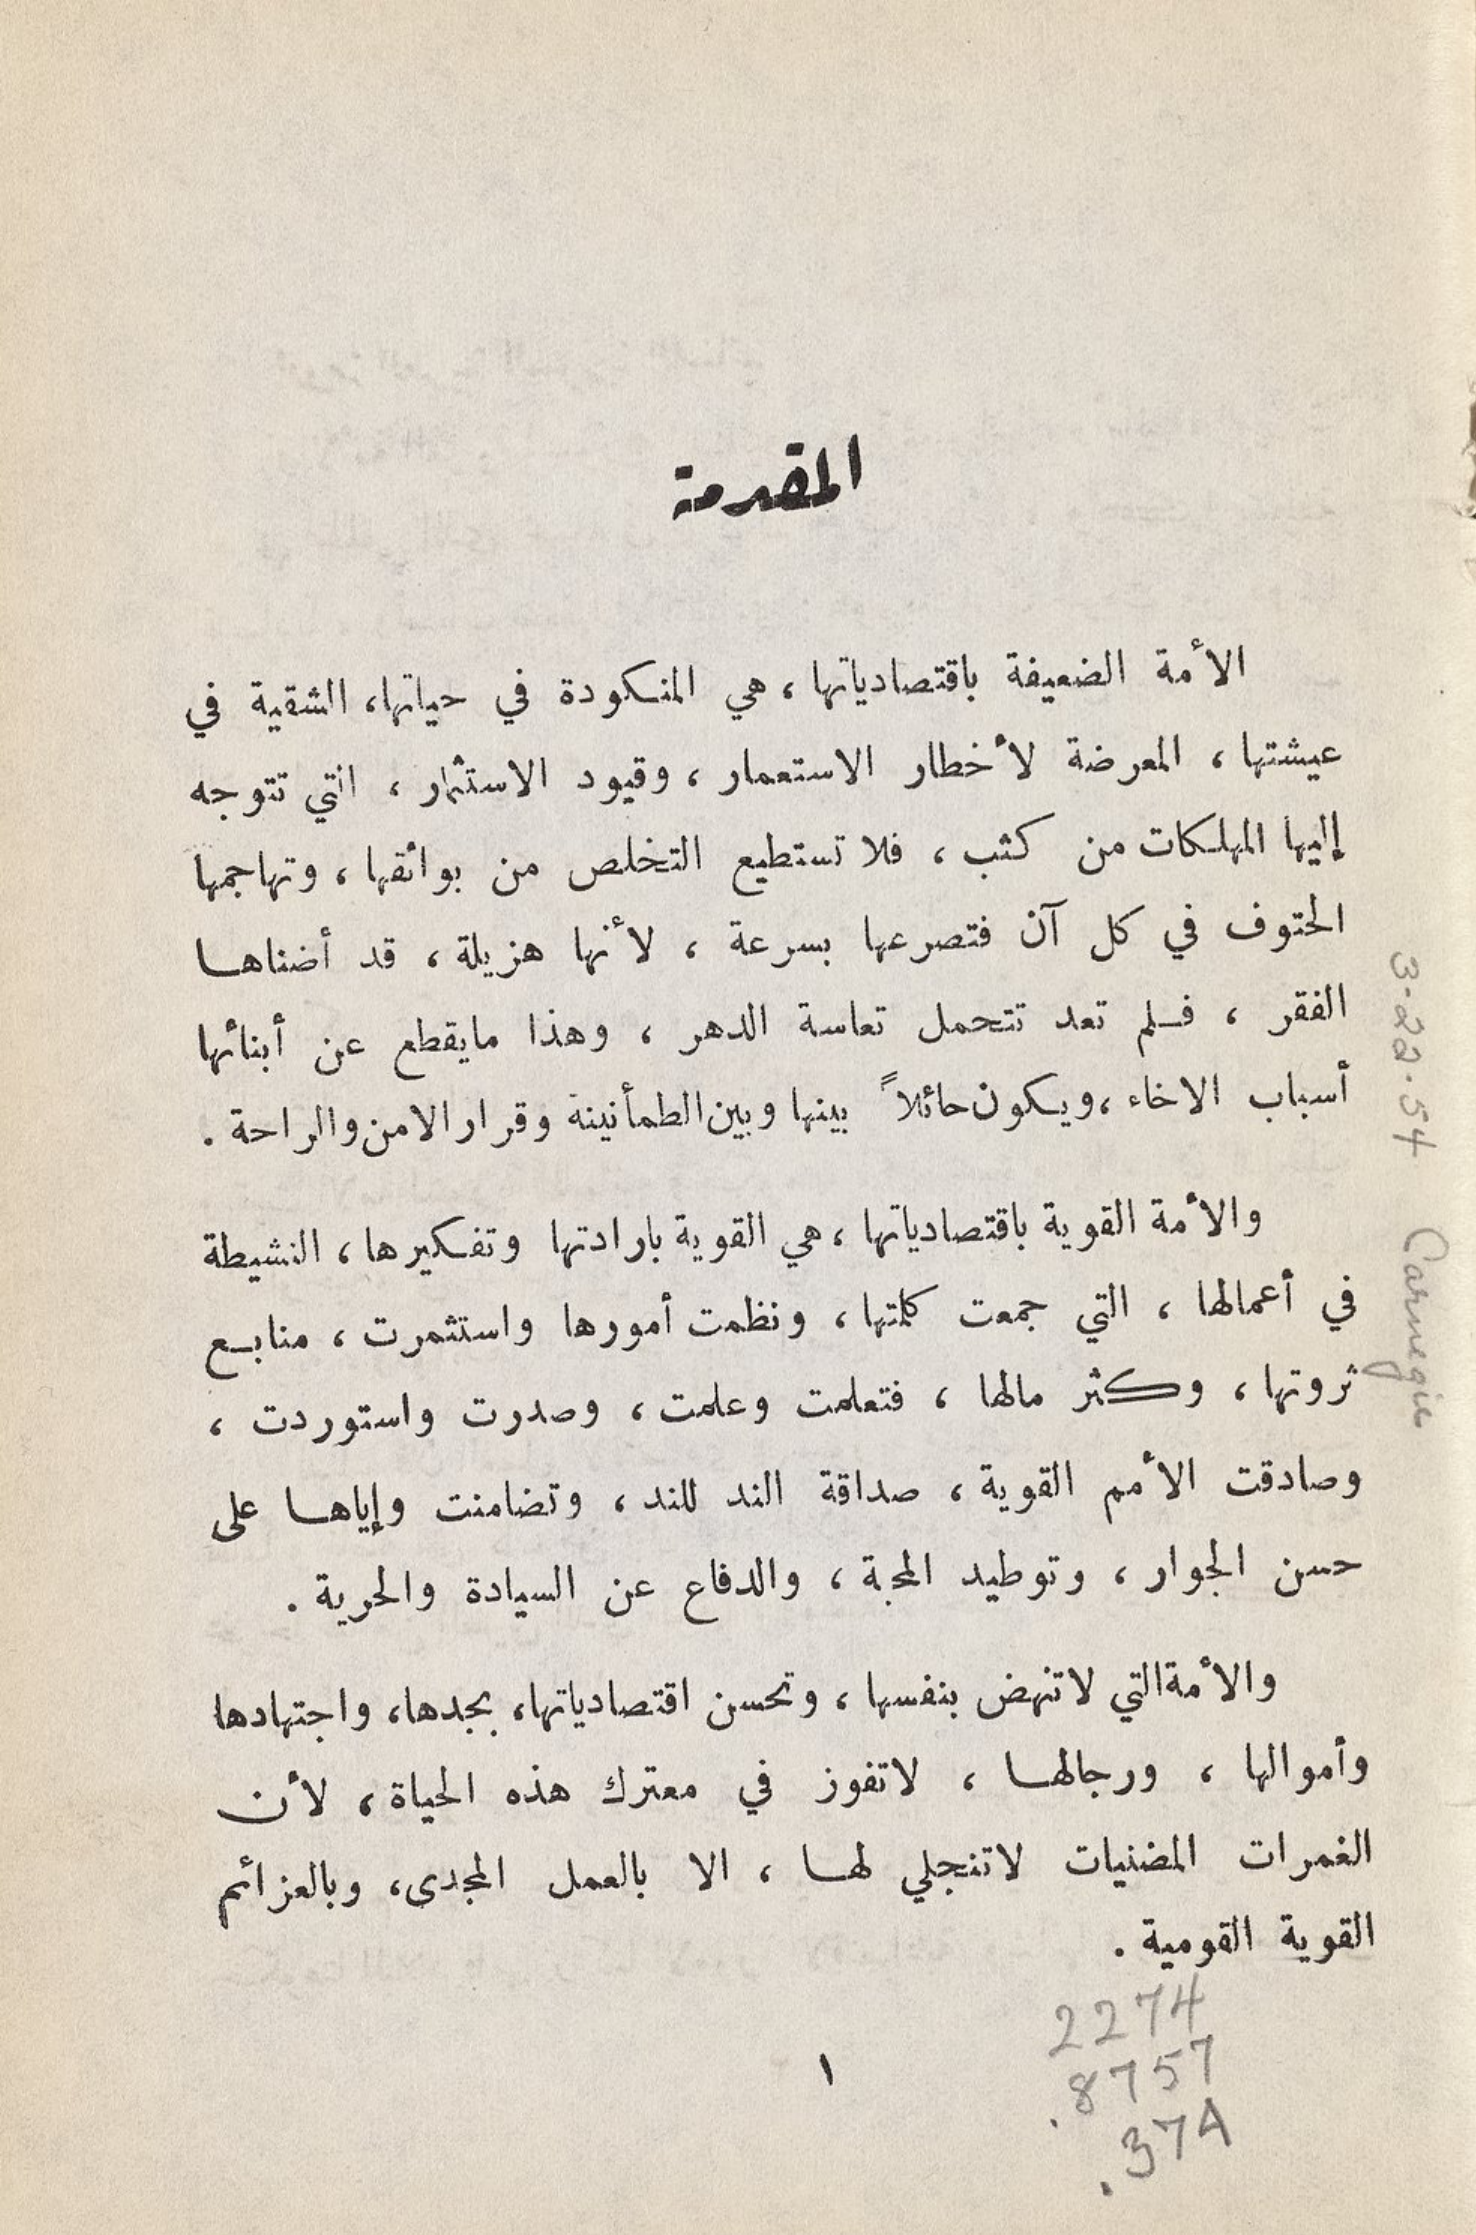 المقدمة
الأمة الضعيفة باقتصادياتها ، هي المنكودة في حياتها، الشقية في
عيشتها ، المعرضة لأخطار الاستعمار ، وقيود الاستثمار ، التي تتوجه
إليها المهلكات من كثب ، فلا تستطيع التخلص من بوائقها ، وتهاجمها
الحتوف في كل آن فتصرعها بسرعة ، لأنها هزيلة ، قد أضناها
الفقر ، فلم تعد تتحمل تعاسة الدهر ، وهذا مايقطع عن أبنائها
أسباب الاخاء ، ويكون حائلاً بينها وبين الطمأنينة وقرار الامن والراحة .
والأمة القوية باقتصادياتها ، هي القوية بارادتها وتفكيرها ، النشيطة
في أعمالها ، التي جمعت كلمتها ، ونظمت أمورها واستثمرت ، منابع
ثروتها ، وكثر مالها ، فتعلمت وعلمت ، وصدرت واستوردت ،
وصادقت الأمم القوية ، صداقة الند للند ، وتضامنت وإياها على
حسن الجوار ، وتوطيد المحبة ، والدفاع عن السيادة والحرية .
والأمة التي لاتنهض بنفسها ، وتحسن اقتصادياتها، بجدها، واجتهادها
وأموالها ، ورجالها ، لاتفوز في معترك هذه الحياة ، لأن
الغمرات المضنيات لاتنجلي لها ، الا بالعمل المجدى، وبالعزائم
القوية القومية .
١
2274
.8757
.37A
3-22-54 Carnegie